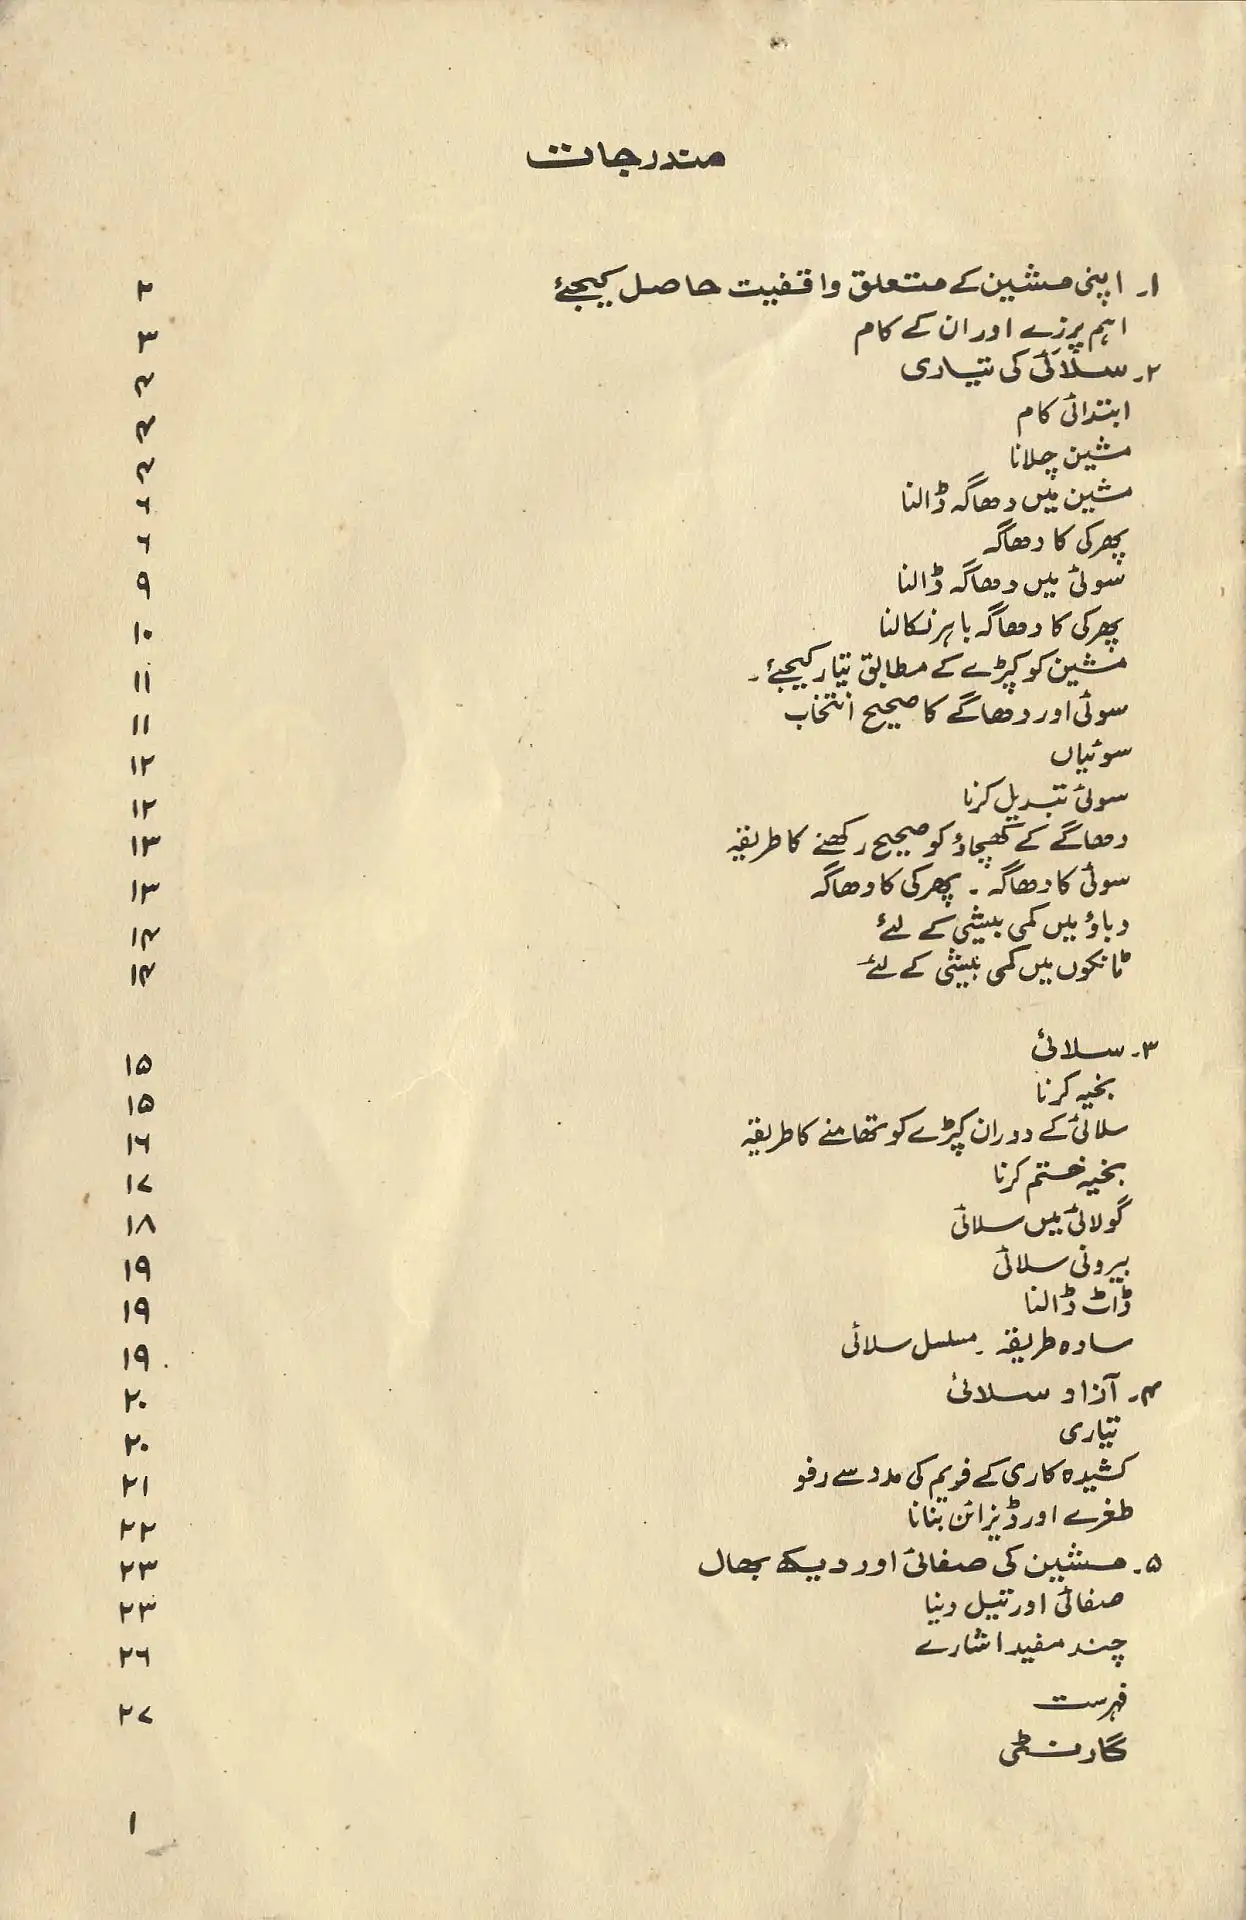 مندرجات
۱۔ اپنی مشین کے متعلق واقفیت حاصل کیجئے ۲
اہم پرزے اور ان کے کام ۳
۲۔ سلائی کی تیاری ۴
ابتدائی کام ۴
مشین چلانا ۴
مشین میں دھاگہ ڈالنا ۶
پھرکی کا دھاگہ ۶
سوئی میں دھاگہ ڈالنا ۹
پھرکی کا دھاگہ باہر نکالنا ۱۰
مشین کو کپڑے کے مطابق تیار کیجئے۔ ۱۱
سوئی اور دھاگے کا صحیح انتخاب ۱۱
سوئیاں ۱۲
سوئی تبدیل کرنا ۱۲
دھاگے کے کھچاؤ کو صحیح رکھنے کا طریقہ ۱۳
سوئی کا دھاگہ ۔ پھرکی کا دھاگہ ۱۳
دباؤ میں کمی بیشی کے لئے ۱۴
ٹانکوں میں کمی بیشی کے لئے ۱۴
۳۔ سلائی ۱۵
بخیہ کرنا ۱۵
سلائی کے دوران کپڑے کو تھامنے کا طریقہ ۱۶
بخیہ ختم کرنا ۱۷
گولائی میں سلائی ۱۸
بیرونی سلائی ۱۹
ڈاٹ ڈالنا ۱۹
سادہ طریقہ ۔ مسلسل سلائی ۱۹
۴۔ آزاد سلائی ۲۰
تیاری ۲۰
کشیدہ کاری کے فریم کی مدد سے رفو ۲۱
طغرے اور ڈیزائن بنانا ۲۲
۵۔ مشین کی صفائی اور دیکھ بھال ۲۳
صفائی اور تیل دینا ۲۳
چند مفید اشارے ۲۶
فہرست ۲۷
گارنٹی
۱